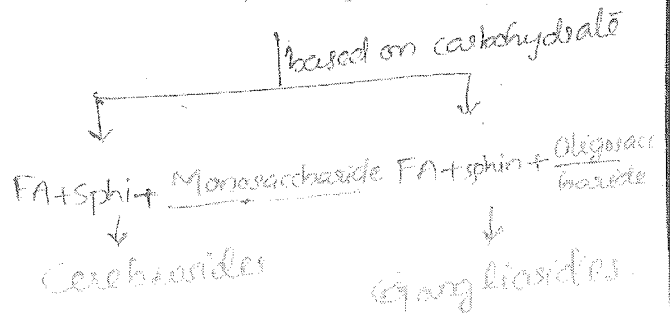 based on carbohydrate
FA+Sphi+ Monosaccharide FA+sphin+ Oligosacc
haride
Cerebrosides
Gangliosides